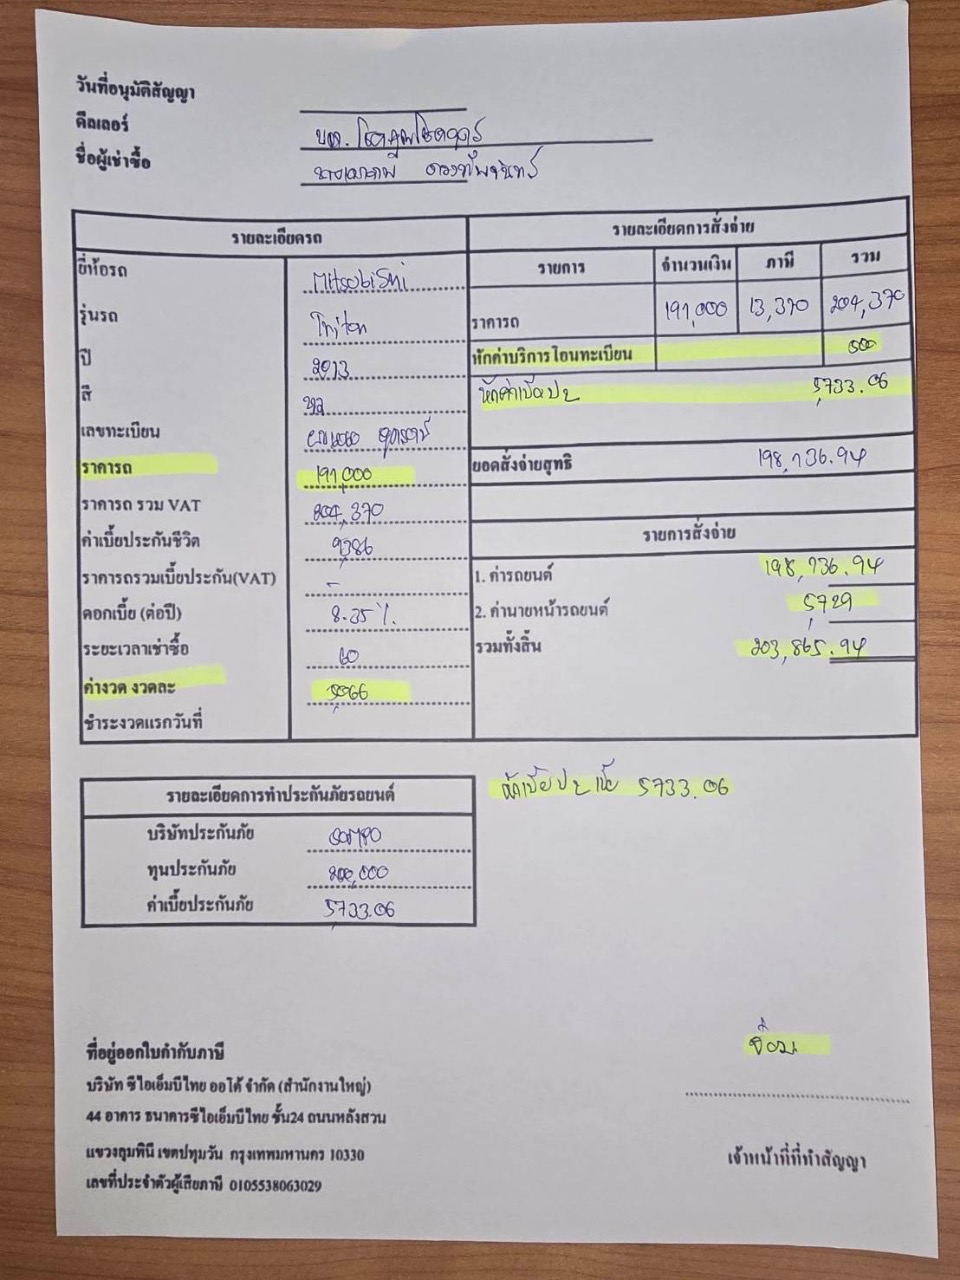 วันที่อนุมัติสัญญา
ดีลเลอร์ บจ.
ชื่อผู้เช่าซื้อ
รายละเอียดรถ
ยี่ห้อรถ Mitsubishi
รุ่นรถ Triton
ปี 2013
สี
เลขทะเบียน
ราคารถ 191,000
ราคารถ รวม VAT 204,370
ค่าเบี้ยประกันชีวิต 9,386
ราคารถรวมเบี้ยประกัน(VAT) -
ดอกเบี้ย (ต่อปี) 8.35%
ระยะเวลาเช่าซื้อ 60
ค่างวด งวดละ
ชำระงวดแรกวันที่
รายละเอียดการสั่งจ่าย
รายการ จำนวนเงิน ภาษี รวม
ราคารถ 191,000 13,370 204,370
หักค่าบริการโอนทะเบียน
หักค่าเบี้ยปะ 5,733.06
ยอดสั่งจ่ายสุทธิ 198,136.94
รายการสั่งจ่าย
1. ค่ารถยนต์ 198,136.94
2. ค่านายหน้ารถยนต์ 5,729
รวมทั้งสิ้น 203,865.94
หักเบี้ยปะ 5733.06
รายละเอียดการทำประกันภัยรถยนต์
บริษัทประกันภัย SOMPO
ทุนประกันภัย 200,000
ค่าเบี้ยประกันภัย 5,733.06
ที่อยู่ออกใบกำกับภาษี
บริษัท ซีไอเอ็มบีไทย ออโต้ จำกัด (สำนักงานใหญ่)
44 อาคาร ธนาคารซีไอเอ็มบีไทย ชั้น24 ถนนหลังสวน
แขวงลุมพินี เขตปทุมวัน กรุงเทพมหานคร 10330
เลขที่ประจำตัวผู้เสียภาษี 0105538063029
เจ้าหน้าที่ที่ทำสัญญา